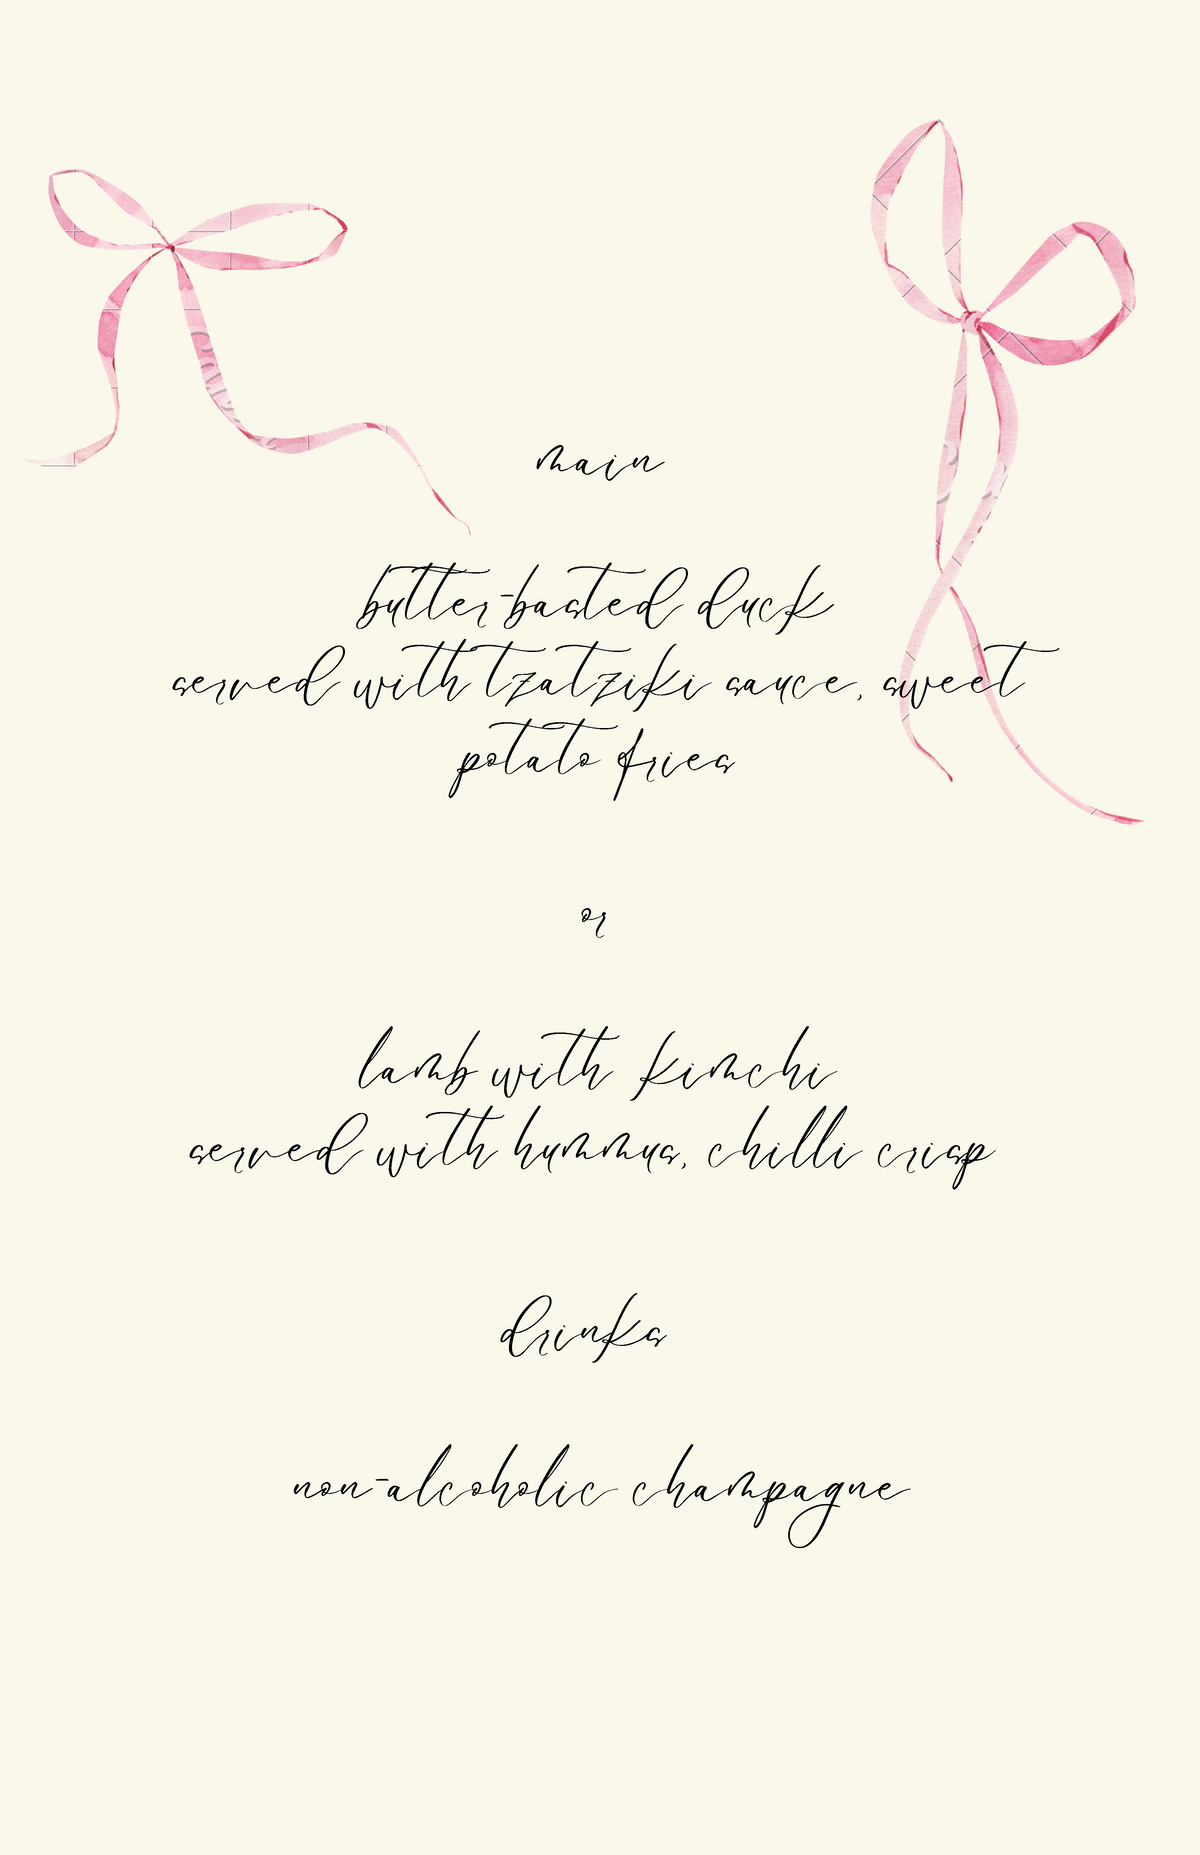 main
butter-basted duck
served with tzatziki sauce, sweet
potato fries
or
lamb with kimchi
served with hummus, chilli crisp
drinks
non-alcoholic champagne